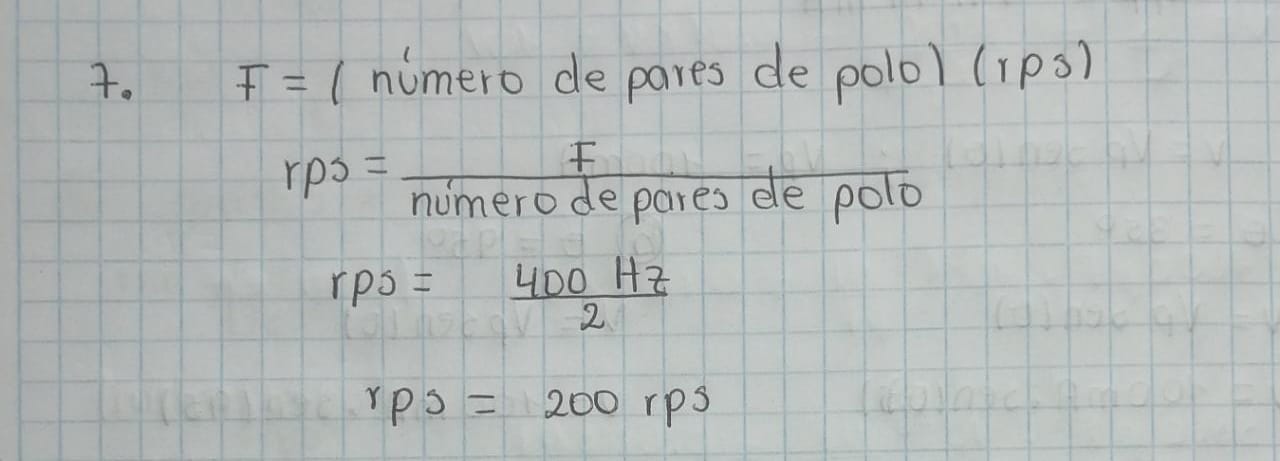 7. F = ( número de pares de polo) (rps)
rps = F / número de pares de polo
rps = 400 Hz / 2
rps = 200 rps